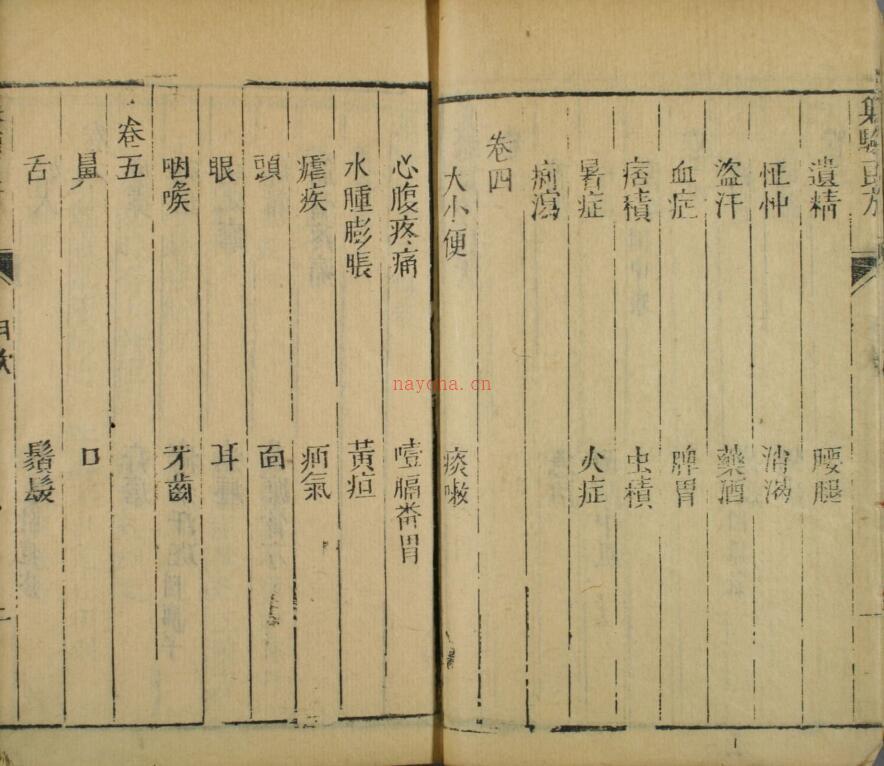 集驗良方
遺精 腰腿
怔忡 消渴
盜汗 藥酒
血症 脾胃
痞積 虫積
暑症 火症
痢瀉
卷四
大小便 痰嗽
心腹疼痛 噎膈番胃
水腫膨脹 黃疸
瘧疾 疝氣
頭 面
眼 耳
咽喉 牙齒
卷五
鼻 口
舌 鬚髮
目錄
nayona.cn